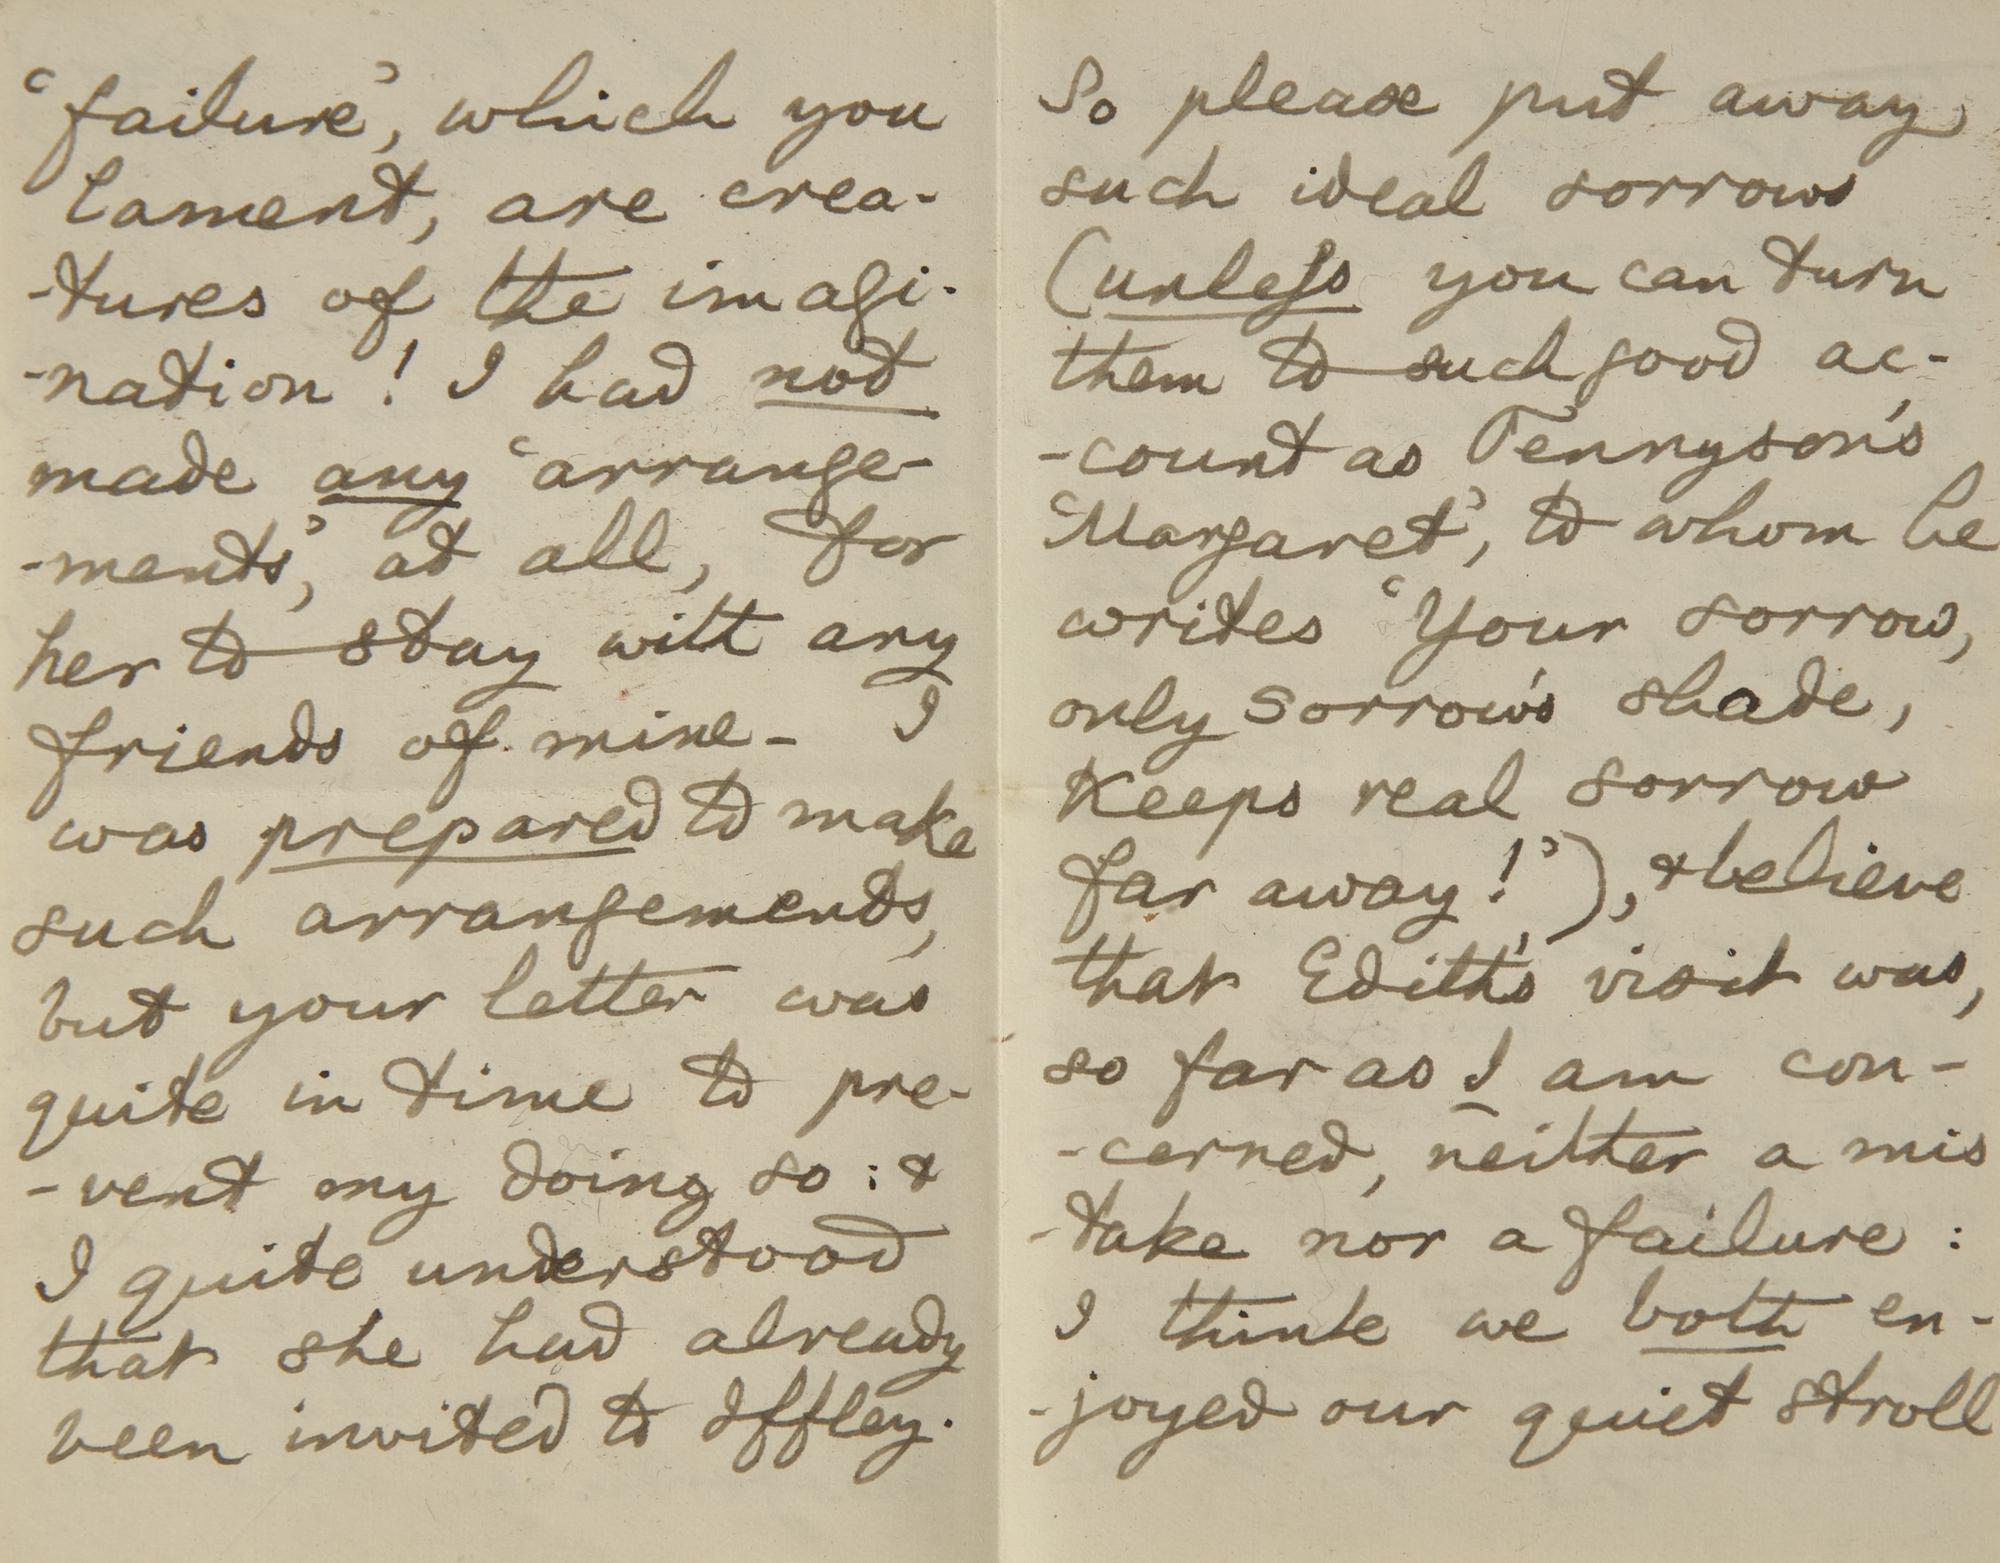 'failure', which you
lament, are crea-
-tures of the imagi-
-nation! I had not
made any 'arrange-
-ments', at all, for
her to stay with any
friends of mine- I
was prepared to make
such arrangements,
but your letter was
quite in time to pre-
-vent my doing so: &
I quite understood
that she had already
been invited to Iffley.
So please put away
such ideal sorrows
(unless you can turn
them to such good ac-
-count as Tennyson's
'Margaret', to whom he
writes 'Your sorrow,
only sorrow's shade,
Keeps real sorrow
far away!'), & believe
that Edith's visit was,
so far as I am con-
-cerned, neither a mis
-take nor a failure:
I think we both en-
-joyed our quiet stroll